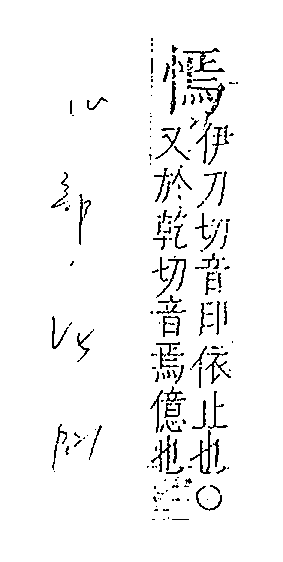 伊刀切音印依止也○
又於乾切音焉億也
心部.